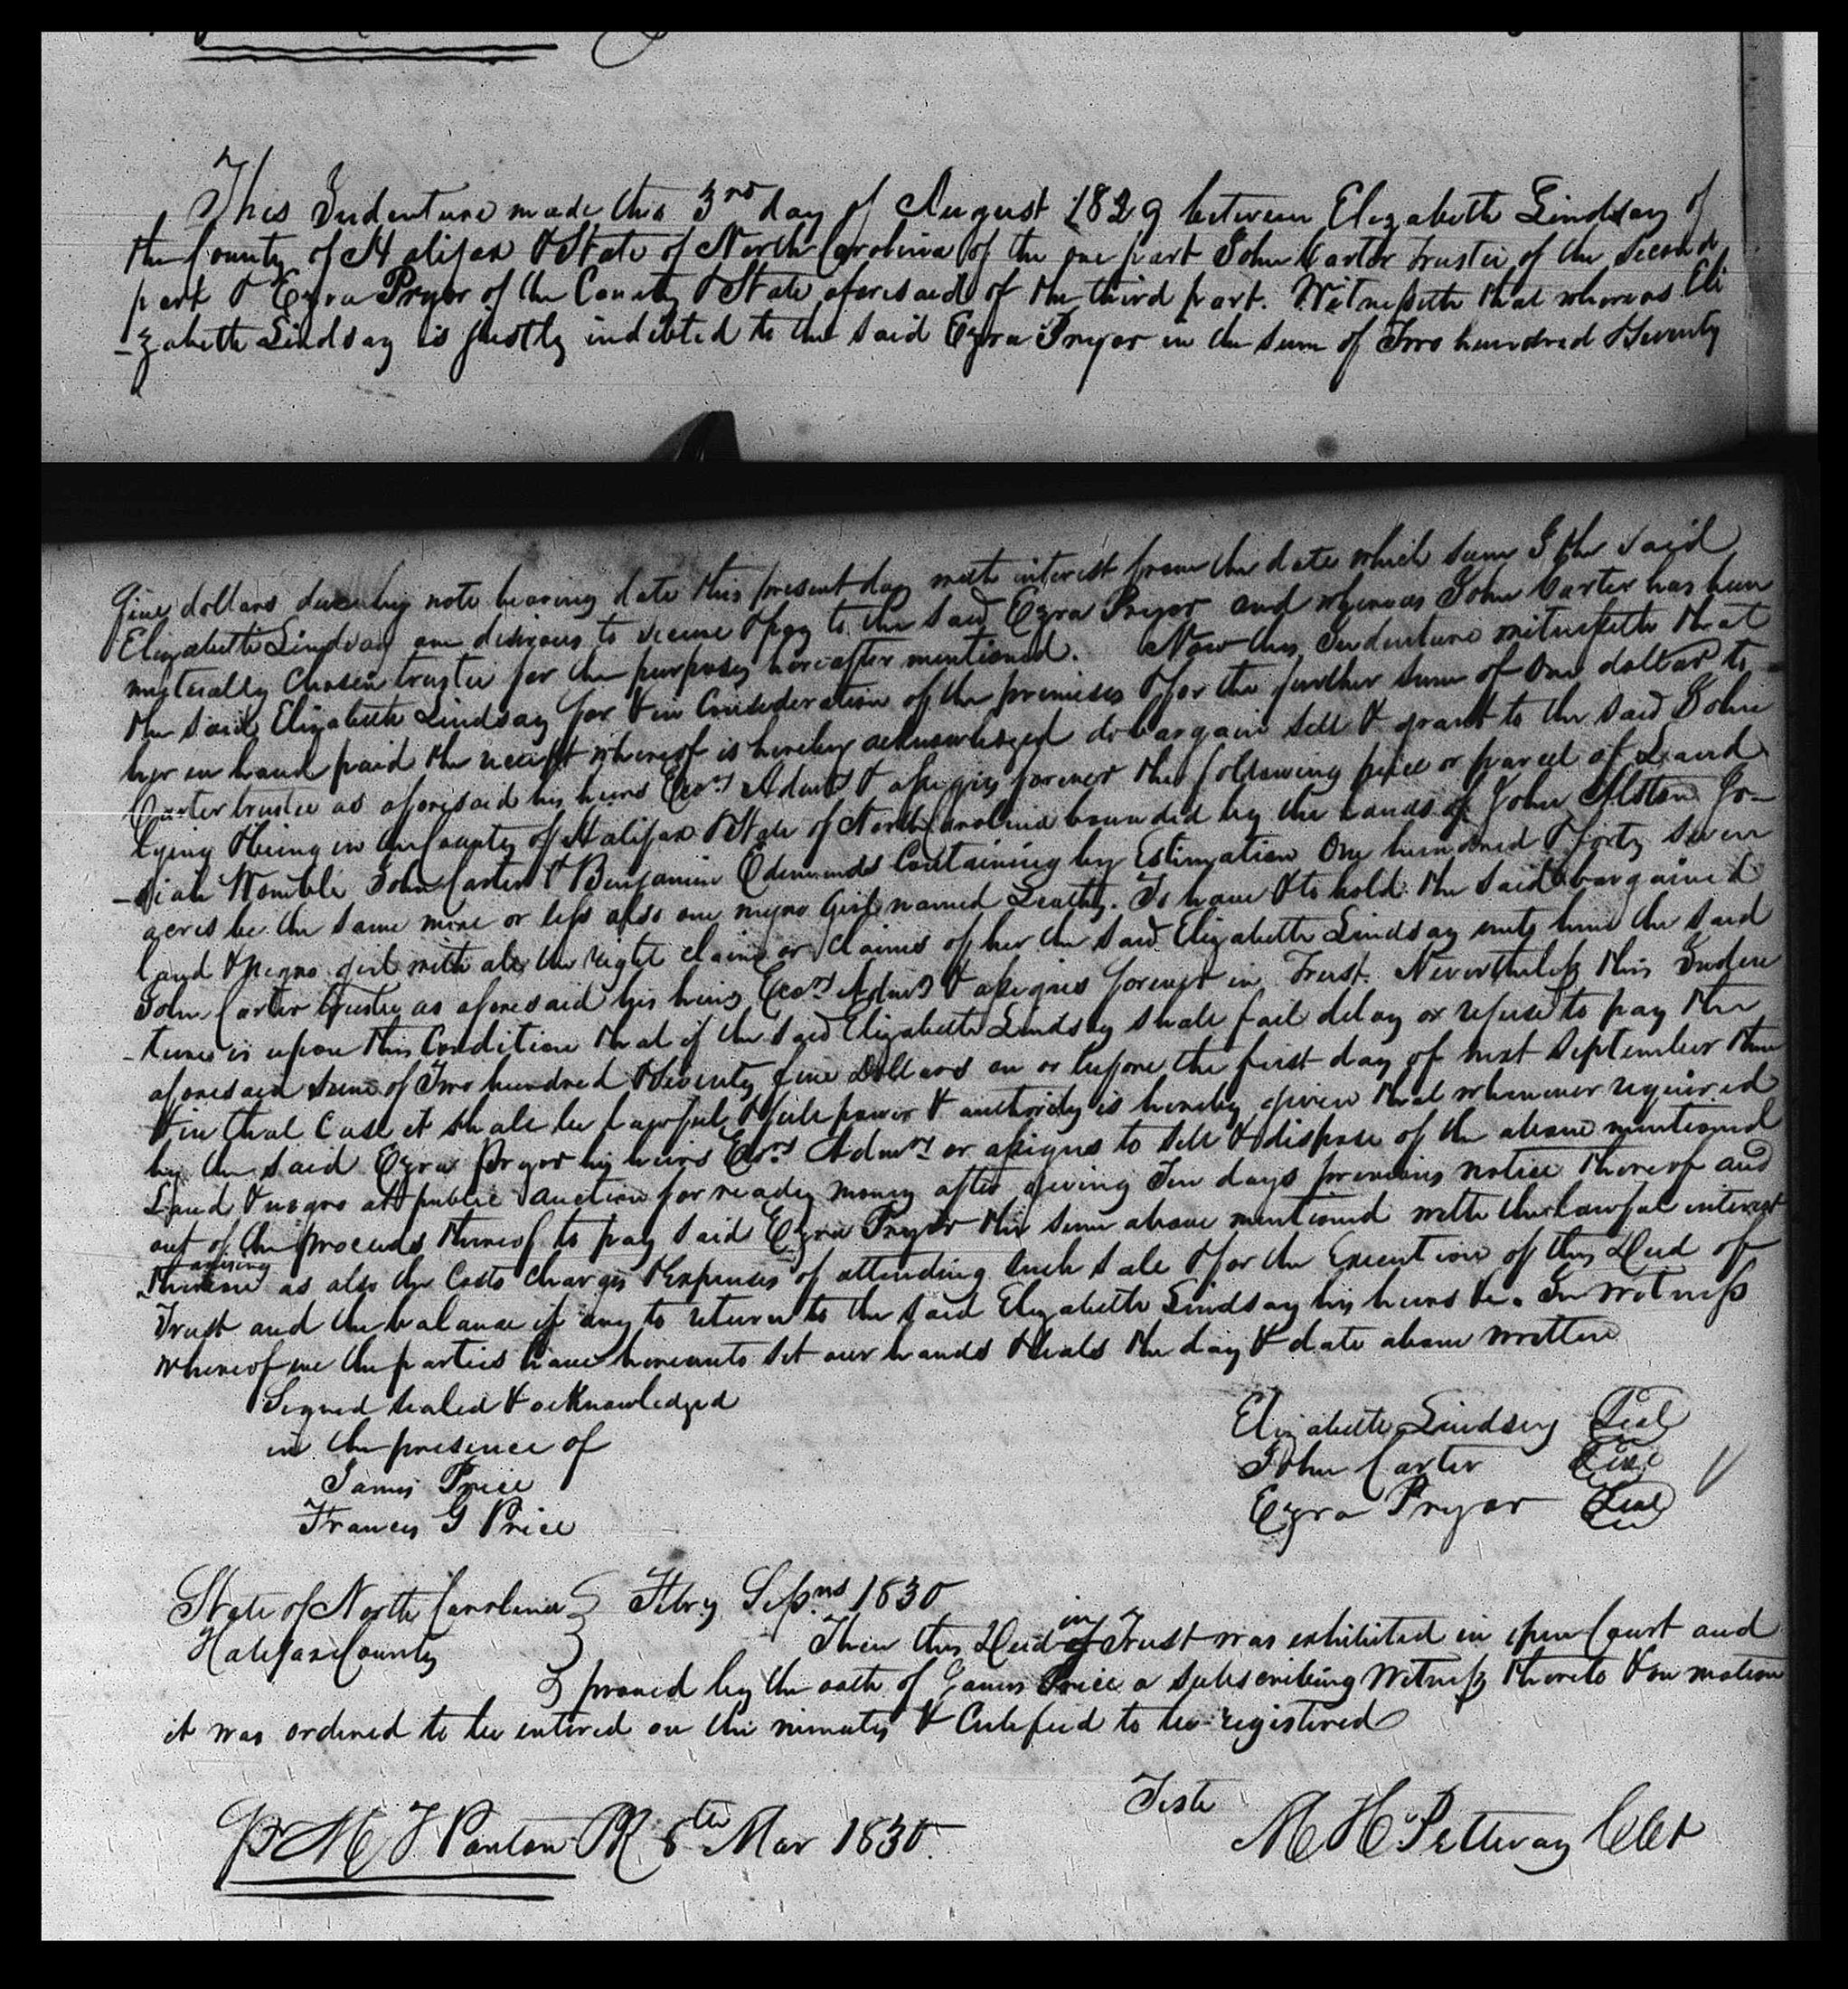 This Indenture made this 3rd day of August 1829 between Elizabeth Lindsay of
the County of Halifax & State of North Carolina of the one part John Carter trustee of the second
part & Ezra Pryor of the County & State aforesaid of the third part. Witnesseth that whereas Eli
-zabeth Lindsay is justly indebted to the said Ezra Pryor in the sum of Two hundred & Seventy
five dollars due by note bearing date this present day with interest from the date which sum I the said
Elizabeth Lindsay am desirous to secure & pay to the said Ezra Pryor and whereas John Carter has been
mutually chosen trustee for the purposes hereafter mentioned. Now this Indenture witnesseth that
the said Elizabeth Lindsay for & in Consideration of the premises & for the further sum of One dollar to
her in hand paid the receipt whereof is hereby acknowledged do bargain sell & grant to the said John
Carter trustee as aforesaid his heirs Exors Admrs & assigns forever the following piece or parcel of Land
lying & being in the County of Halifax & State of North Carolina bounded by the lands of John Alston Jo-
-siah Womble John Carter & Benjamin Edmunds Containing by Estimation One hundred & forty seven
acres be the same more or less also one negro Girl named Leathy. To have & to hold the said bargained
land & negro girl with all the right claim or claims of her the said Elizabeth Lindsay unto him the said
John Carter trustee as aforesaid his heirs Exors Admrs & assigns forever in Trust. Nevertheless this Inden
-ture is upon this Condition that if the said Elizabeth Lindsay shall fail delay or refuse to pay the
aforesaid sum of Two hundred & Seventy five Dollars on or before the first day of next September then
& in that Case it shall be lawful & full power & authority is hereby given that whenever required
by the said Ezra Pryor his heirs Exors Admrs or assigns to sell & dispose of the above mentioned
Land & negro at public auction for ready money after giving Ten days previous notice thereof and
out of the proceeds thereof to pay said Ezra Pryor the sum above mentioned with the lawful interest
arising
thereon as also the Costs Charges & Expenses of attending such sale & for the Execution of this Deed of
Trust and the balance if any to return to the said Elizabeth Lindsay his heirs &c. In Witness
whereof we the parties have hereunto set our hands & seals the day & date above written
Signed sealed & acknowledged
in the presence of
James Price
Francis G Price
Elizabeth Lindsey Seal
John Carter Seal
Ezra Pryor Seal
State of North Carolina } Febry Sessns 1830
Halifax County } Then this Deed of in Trust was exhibited in open Court and
} proved by the oath of James Price a subscribing Witness thereto & on motion
it was ordered to be entered on the minutes & Certified to be registered
Teste
M H Pettway Clk
M J Ponton PR 8th Mar 1830.